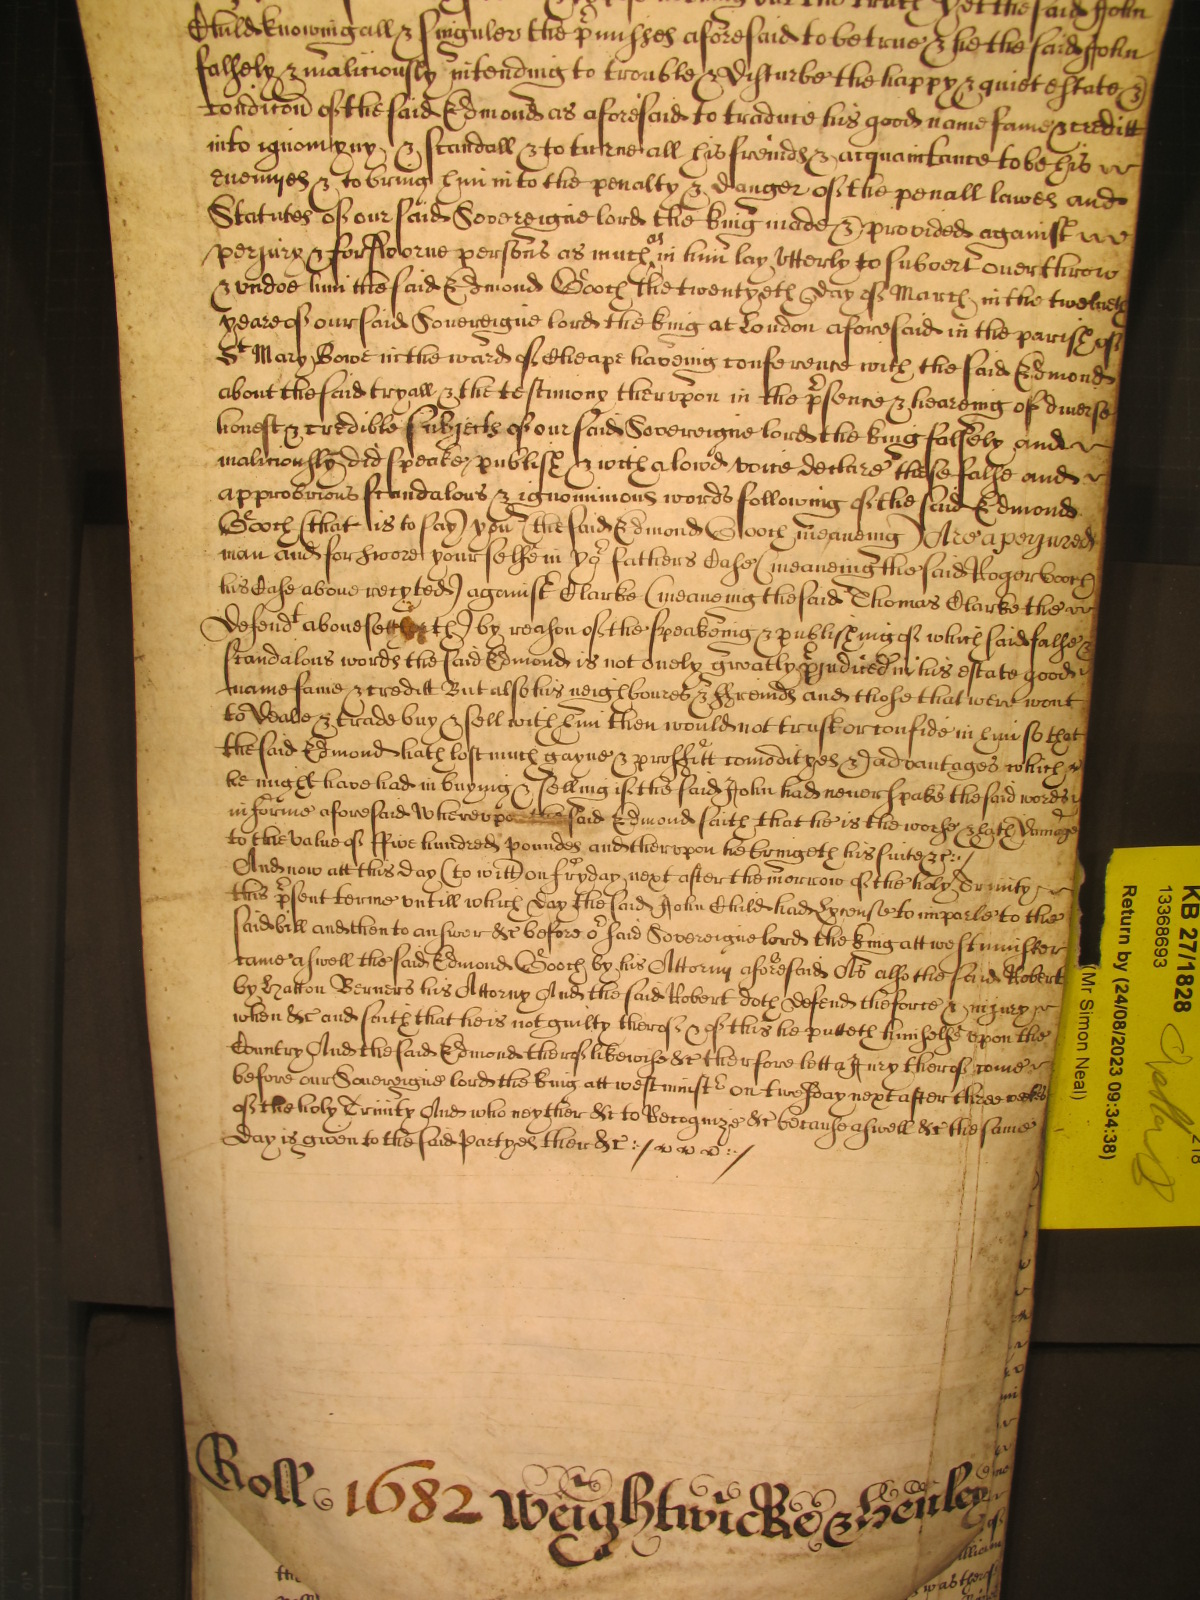 the truth Yet the said John
Child knowing all & singuler the p̃misses aforesaid to be true & he the said John
falsely & maliciously intending to trouble & disturbe the happy & quiet estate &
condicõn of the said Edmond as aforesaid to traduce his good name fame & creditt
into ignomyny & scandall & to turne all his freinds & acquaintance to be his
enemyes & to bring him into the penalty & danger of the penall lawes and
Statutes of our said Sovereigne lord the king made & provided against
perjury & forsworne persons as much as in him lay utterly to subvert overthrow
& undoe him the said Edmond Gooch the twentyeth day of March in the twelueth
yeare of our said Sovereigne lord the king at London aforesaid in the parish of
St Mary Bowe in the ward of Cheape haveing conference with the said Edmond
about the said tryall & the testimony therupon in the p̃sence & heareing of diverse
honest & credible subjects of our said Sovereigne lord the king falsely and
maliciously did speake publish & with a lowd voice declare these false and
approbrious scandalous & ignominious words following of the said Edmond
Gooch (that is to say) you (the said Edmond Gooch meaneing) Are a perjured
man and forswore your selfe in yor fathers Case (meaneing the said Roger Gooch
his Case above recyted) against Clarke (meaneing the said Thomas Clarke the
Defendt above setforth) by reason of the speakeing & publishing of which said false &
scandalous words the said Edmond is not onely greatly p̃judiced in his estate good
name fame & creditt But also his neighboures & ffreinds and those that were wont
to deale & trade buy & sell with him then would not trust or confide in him so that
the said Edmond hath lost much gayne & proffitt comodityes & advantages which
he might have had in buying & selling if the said John had never spake the said words
in forme aforesaid Wherevpon the said Edmond saith that he is the worse & hath damage
to the value of ffive hundred poundes and therupon he bringeth his suite &c
And now att this day (to witt) on fryday next after the morrow of the holy Trinity
this p̃sent terme untill which day the said John Child had lycense to imparle to the
said bill and then to answer &c before or said Sovereigne lord the king att westminster
came aswell the said Edmond Gooch by his Attorny aforesaid As also the said Robert
by Hatton Berners his Attorny And the said Robert doth defend the force & injury
when &c and saith that he is not guilty therof & of this he putteth himselfe upon the
Country And the said Edmond therof likewise &c therfore lett a Jury therof come
before our Sovereigne lord the king att westminstr on twesday next after three weekes
of the holy Trinity And who neyther &c to Recognize &c because aswell &c the same
day is given to the said partyes there &c
Roll 1682 Weightwicke & Henley
KB 27/1828
13368693
Return by (24/08/2023 09:34:38)
(Mr Simon Neal)
218